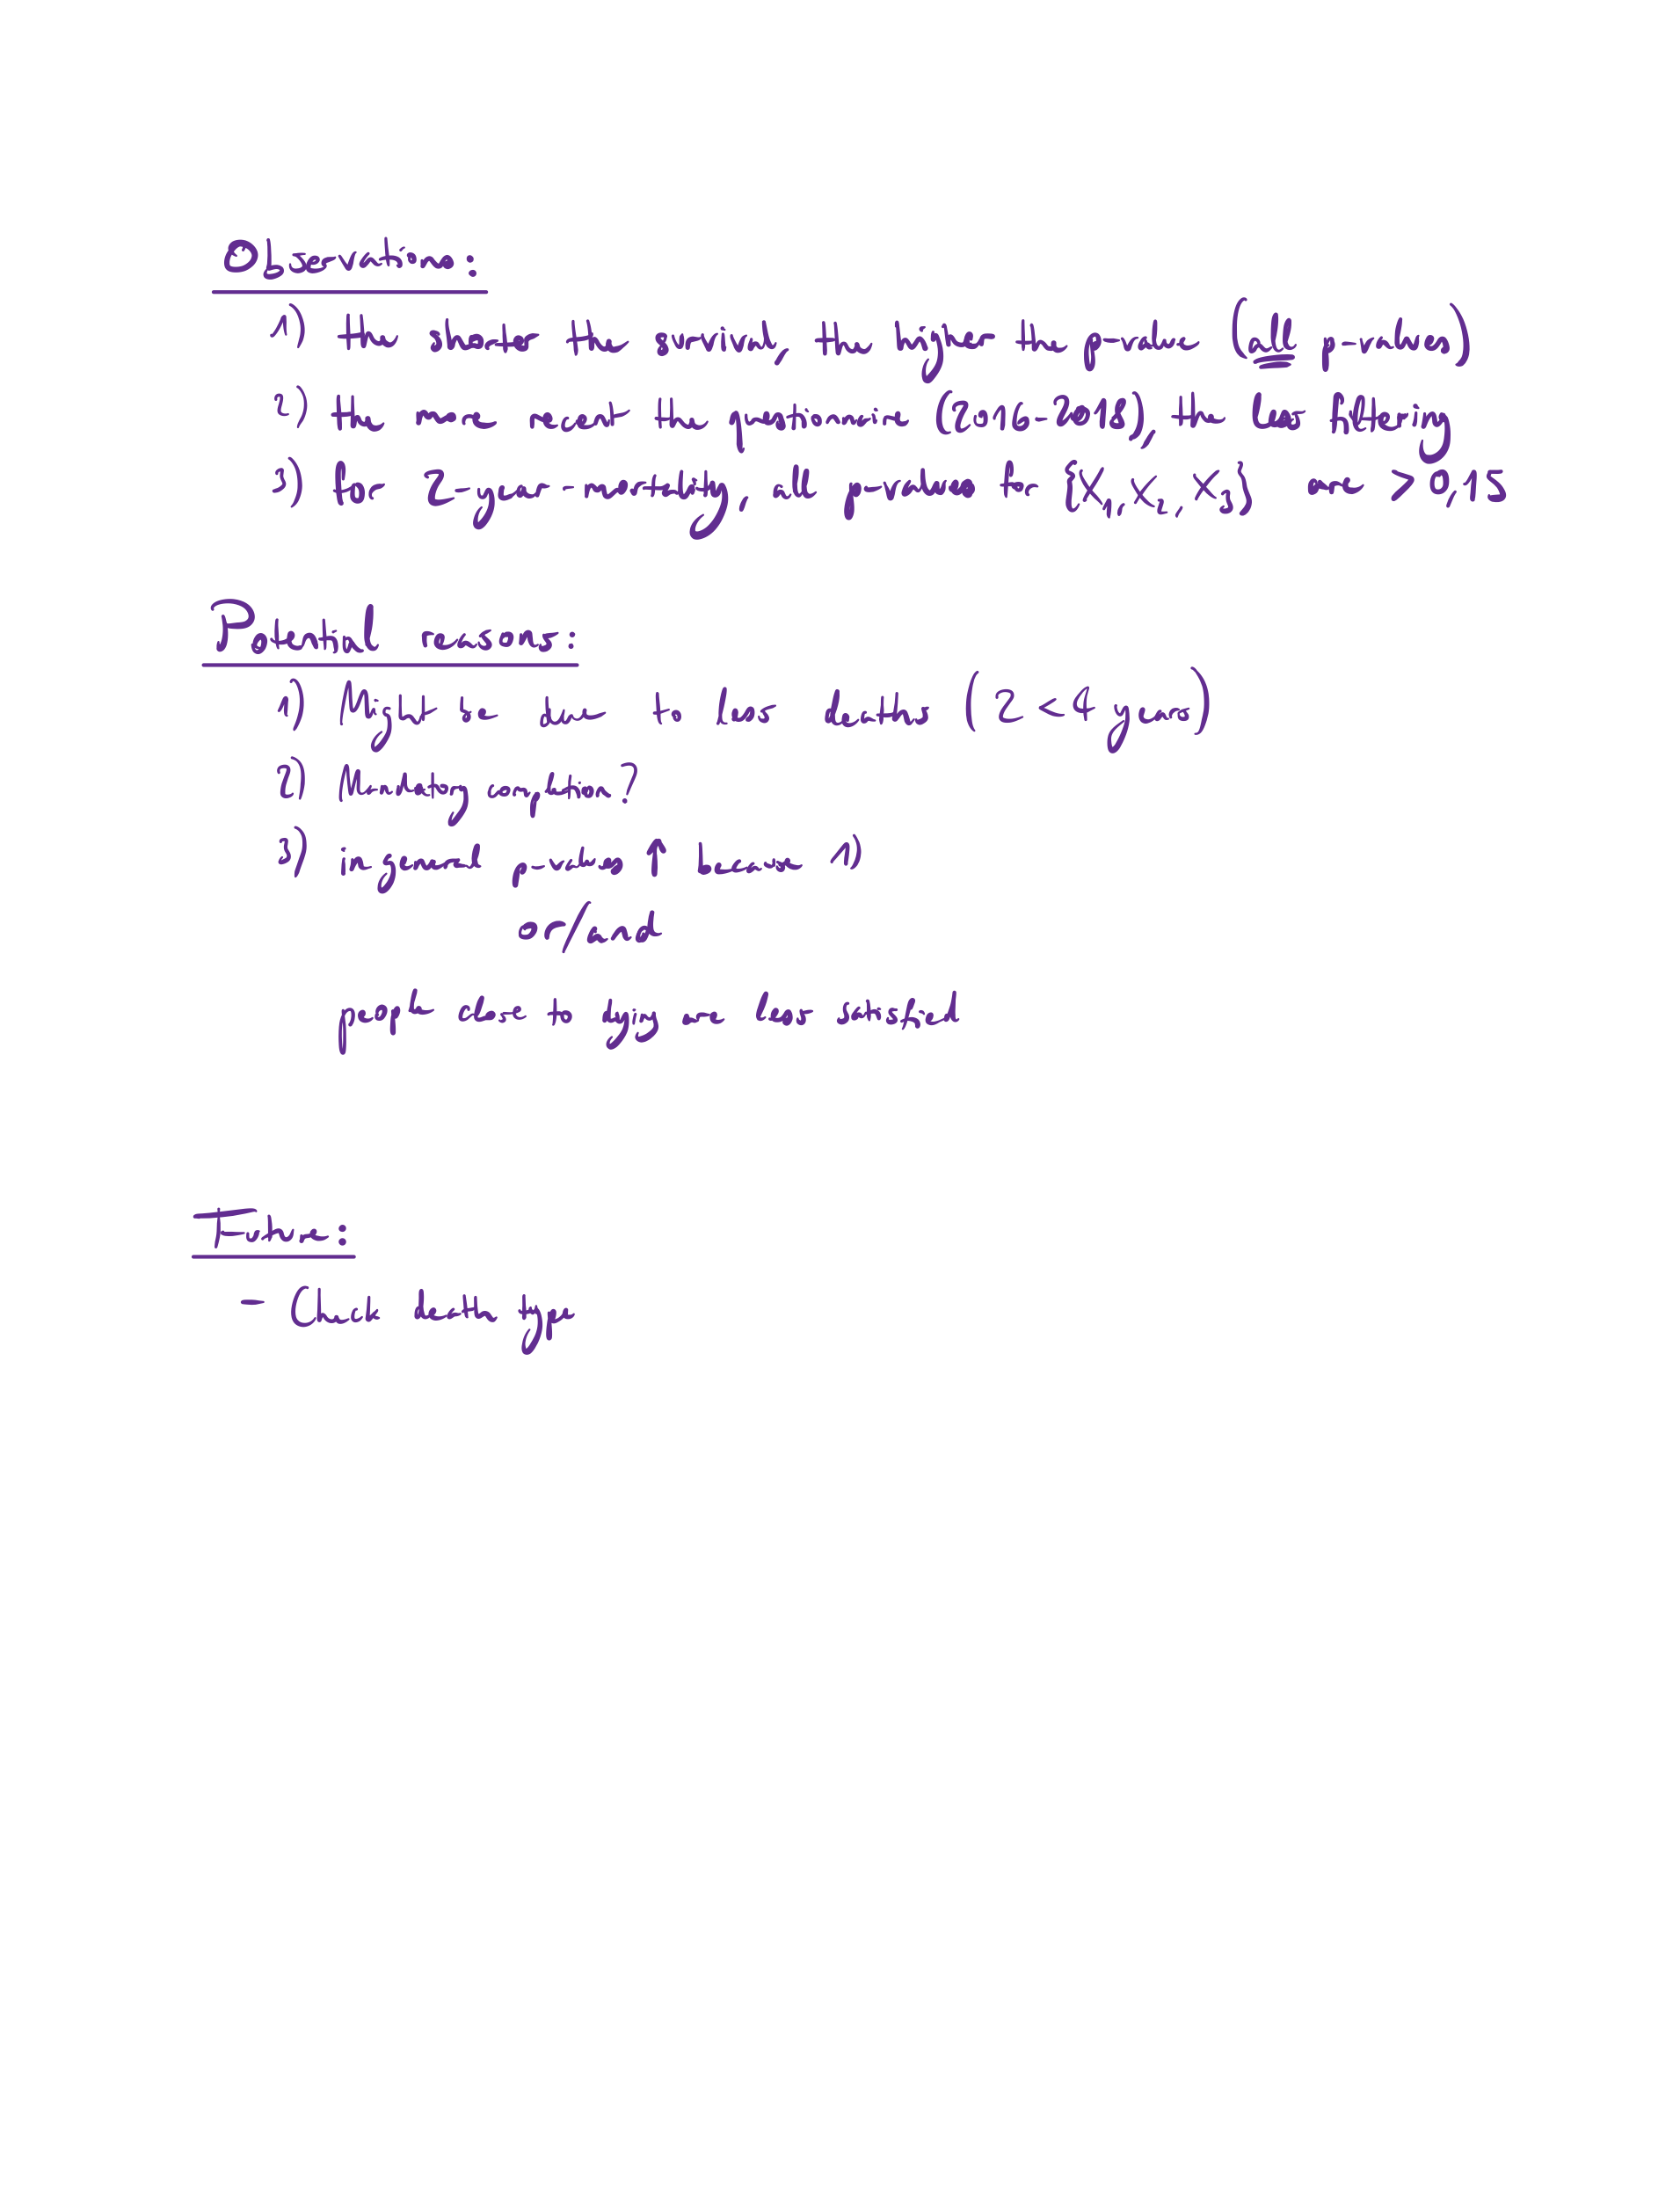 Observations:
1) the shorter the survival, the higher the p-value (all p-values)
2) the more recent the questionnaire (2016-2018), the less filtering
3) for 2-year-mortality, all p-values for {X1, X2, X3} are > 0,15
Potential reasons:
1) Might be due to less deaths (2 < 4 years)
2) Mandatory completion?
3) in general p-values ↑ because 1)
or/and
people close to dying are less satisfied
Future:
- Check death type